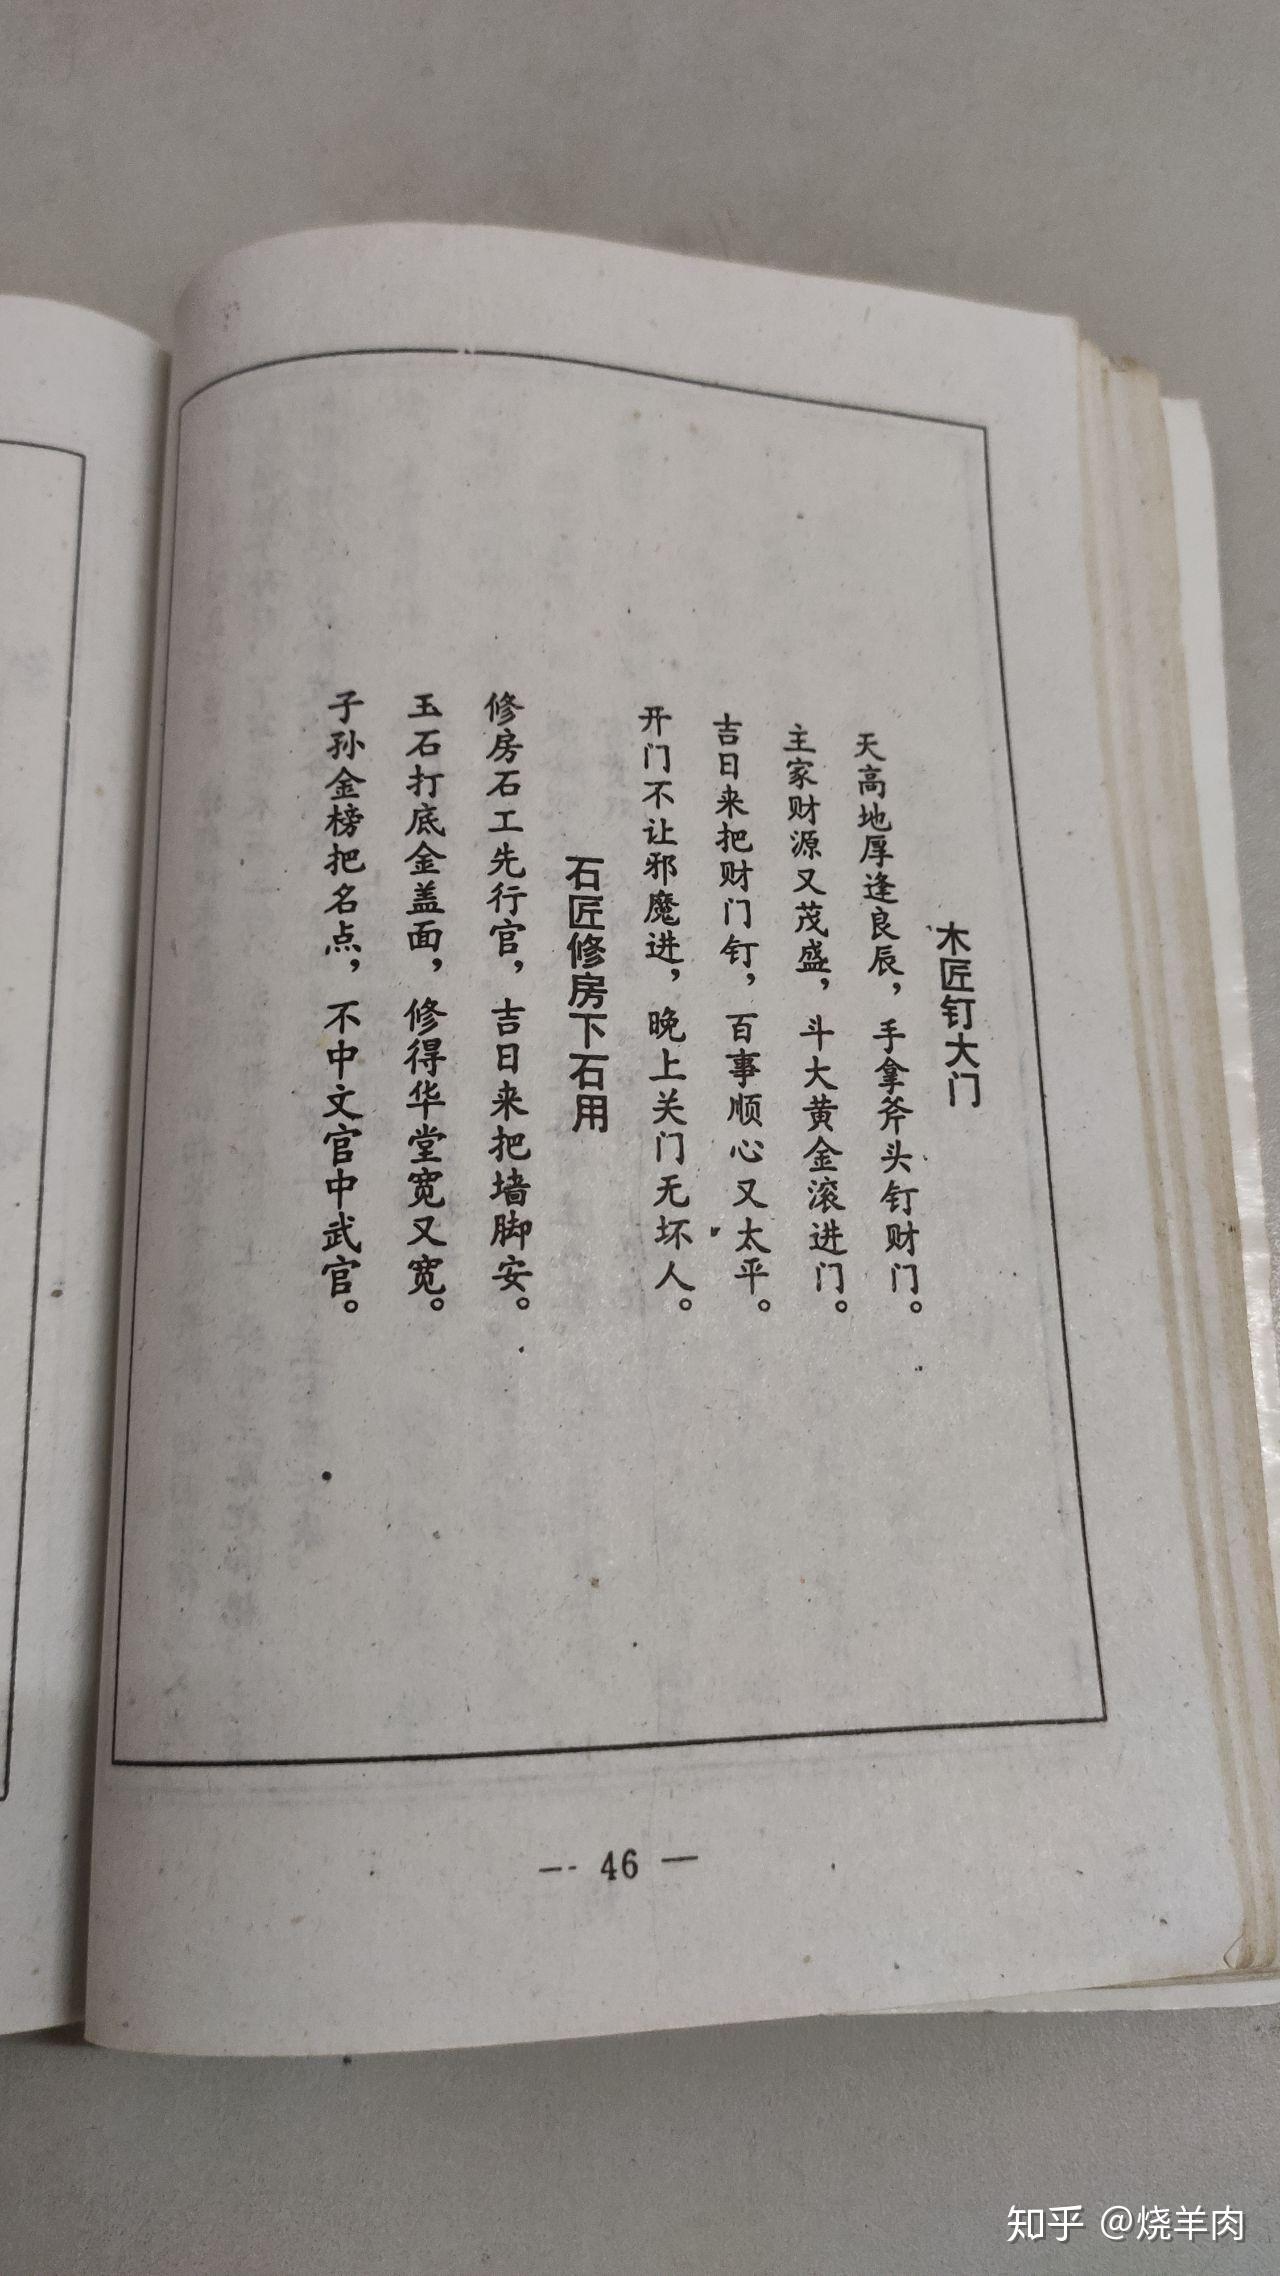 木匠钉大门
天高地厚逢良辰，手拿斧头钉财门。
主家财源又茂盛，斗大黄金滚进门。
吉日来把财门钉，百事顺心又太平。
开门不让邪魔进，晚上关门无坏人。
石匠修房下石用
修房石工先行官，吉日来把墙脚安。
玉石打底金盖面，修得华堂宽又宽。
子孙金榜把名点，不中文官中武官。
— 46 —
知乎 @烧羊肉